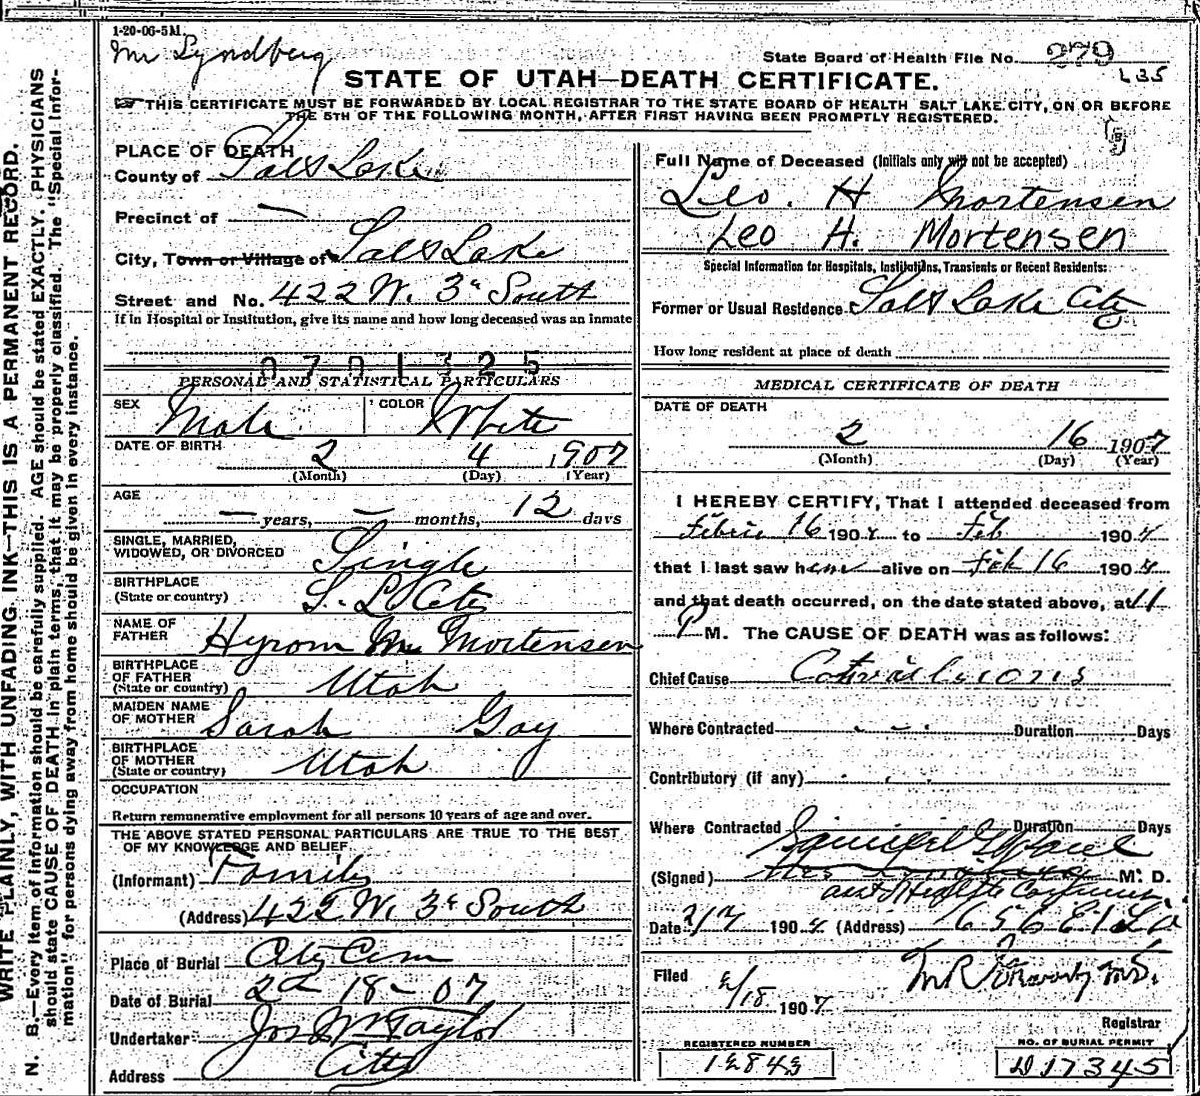 1-20-06-5M
Mr Lyndberg
State Board of Health File No. 279
L35
STATE OF UTAH—DEATH CERTIFICATE.
THIS CERTIFICATE MUST BE FORWARDED BY LOCAL REGISTRAR TO THE STATE BOARD OF HEALTH SALT LAKE CITY, ON OR BEFORE
THE 5TH OF THE FOLLOWING MONTH, AFTER FIRST HAVING BEEN PROMPTLY REGISTERED.
WRITE PLAINLY, WITH UNFADING INK—THIS IS A PERMANENT RECORD.
N. B.—Every item of information should be carefully supplied. AGE should be stated EXACTLY. PHYSICIANS
should state CAUSE OF DEATH in plain terms, that it may be properly classified. The "Special Infor-
mation" for persons dying away from home should be given in every instance.
PLACE OF DEATH
County of Salt Lake
Precinct of —
City, Town or Village of Salt Lake
Street and No. 422 W. 3d South
If in Hospital or Institution, give its name and how long deceased was an inmate
0701325
PERSONAL AND STATISTICAL PARTICULARS
SEX Male COLOR White
DATE OF BIRTH
2 4 1907
(Month) (Day) (Year)
AGE
— years, — months, 12 days
SINGLE, MARRIED,
WIDOWED, OR DIVORCED Single
BIRTHPLACE
(State or country) S. L. City
NAME OF
FATHER Hyrom M Mortensen
BIRTHPLACE
OF FATHER
(State or country) Utah
MAIDEN NAME
OF MOTHER Sarah Gay
BIRTHPLACE
OF MOTHER
(State or country) Utah
OCCUPATION
Return remunerative employment for all persons 10 years of age and over.
THE ABOVE STATED PERSONAL PARTICULARS ARE TRUE TO THE BEST
OF MY KNOWLEDGE AND BELIEF
(Informant) Family
(Address) 422 W. 3d South
Place of Burial City Cem
Date of Burial 2- 18- 07
Undertaker Jos Wm Taylor
Address City
Full Name of Deceased (Initials only will not be accepted)
Leo. H Mortensen
Leo H. Mortensen
Special Information for Hospitals, Institutions, Transients or Recent Residents:
Former or Usual Residence Salt Lake City
How long resident at place of death
MEDICAL CERTIFICATE OF DEATH
DATE OF DEATH
2 16 1907
(Month) (Day) (Year)
I HEREBY CERTIFY, That I attended deceased from
16 190 to Feb 190
that I last saw him alive on Feb 16 190
and that death occurred, on the date stated above, at 11
P M. The CAUSE OF DEATH was as follows:
Chief Cause
Where Contracted Duration Days
Contributory (if any)
Where Contracted Duration Days
(Signed) M. D.
Asst Health
Date 2/17 190 (Address) 656 E 1
Filed 2/18 1907
Registrar
REGISTERED NUMBER
12843
NO. OF BURIAL PERMIT
D17345